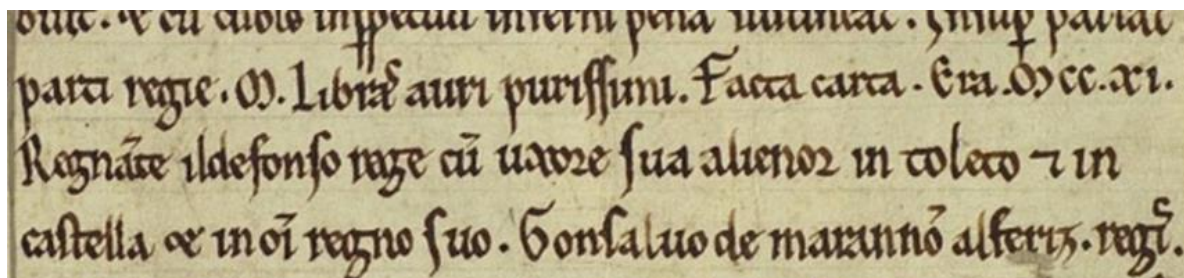 parti regie. M. Librar̄ auri purissimi. Facta carta. Era. M̊ CC. XI.
Regnāte ildefonso rege cū uxore sua alienor in toleto ⁊ in
castella & in oī regno suo. Gonsaluo de marannō alferiz. regis̄.